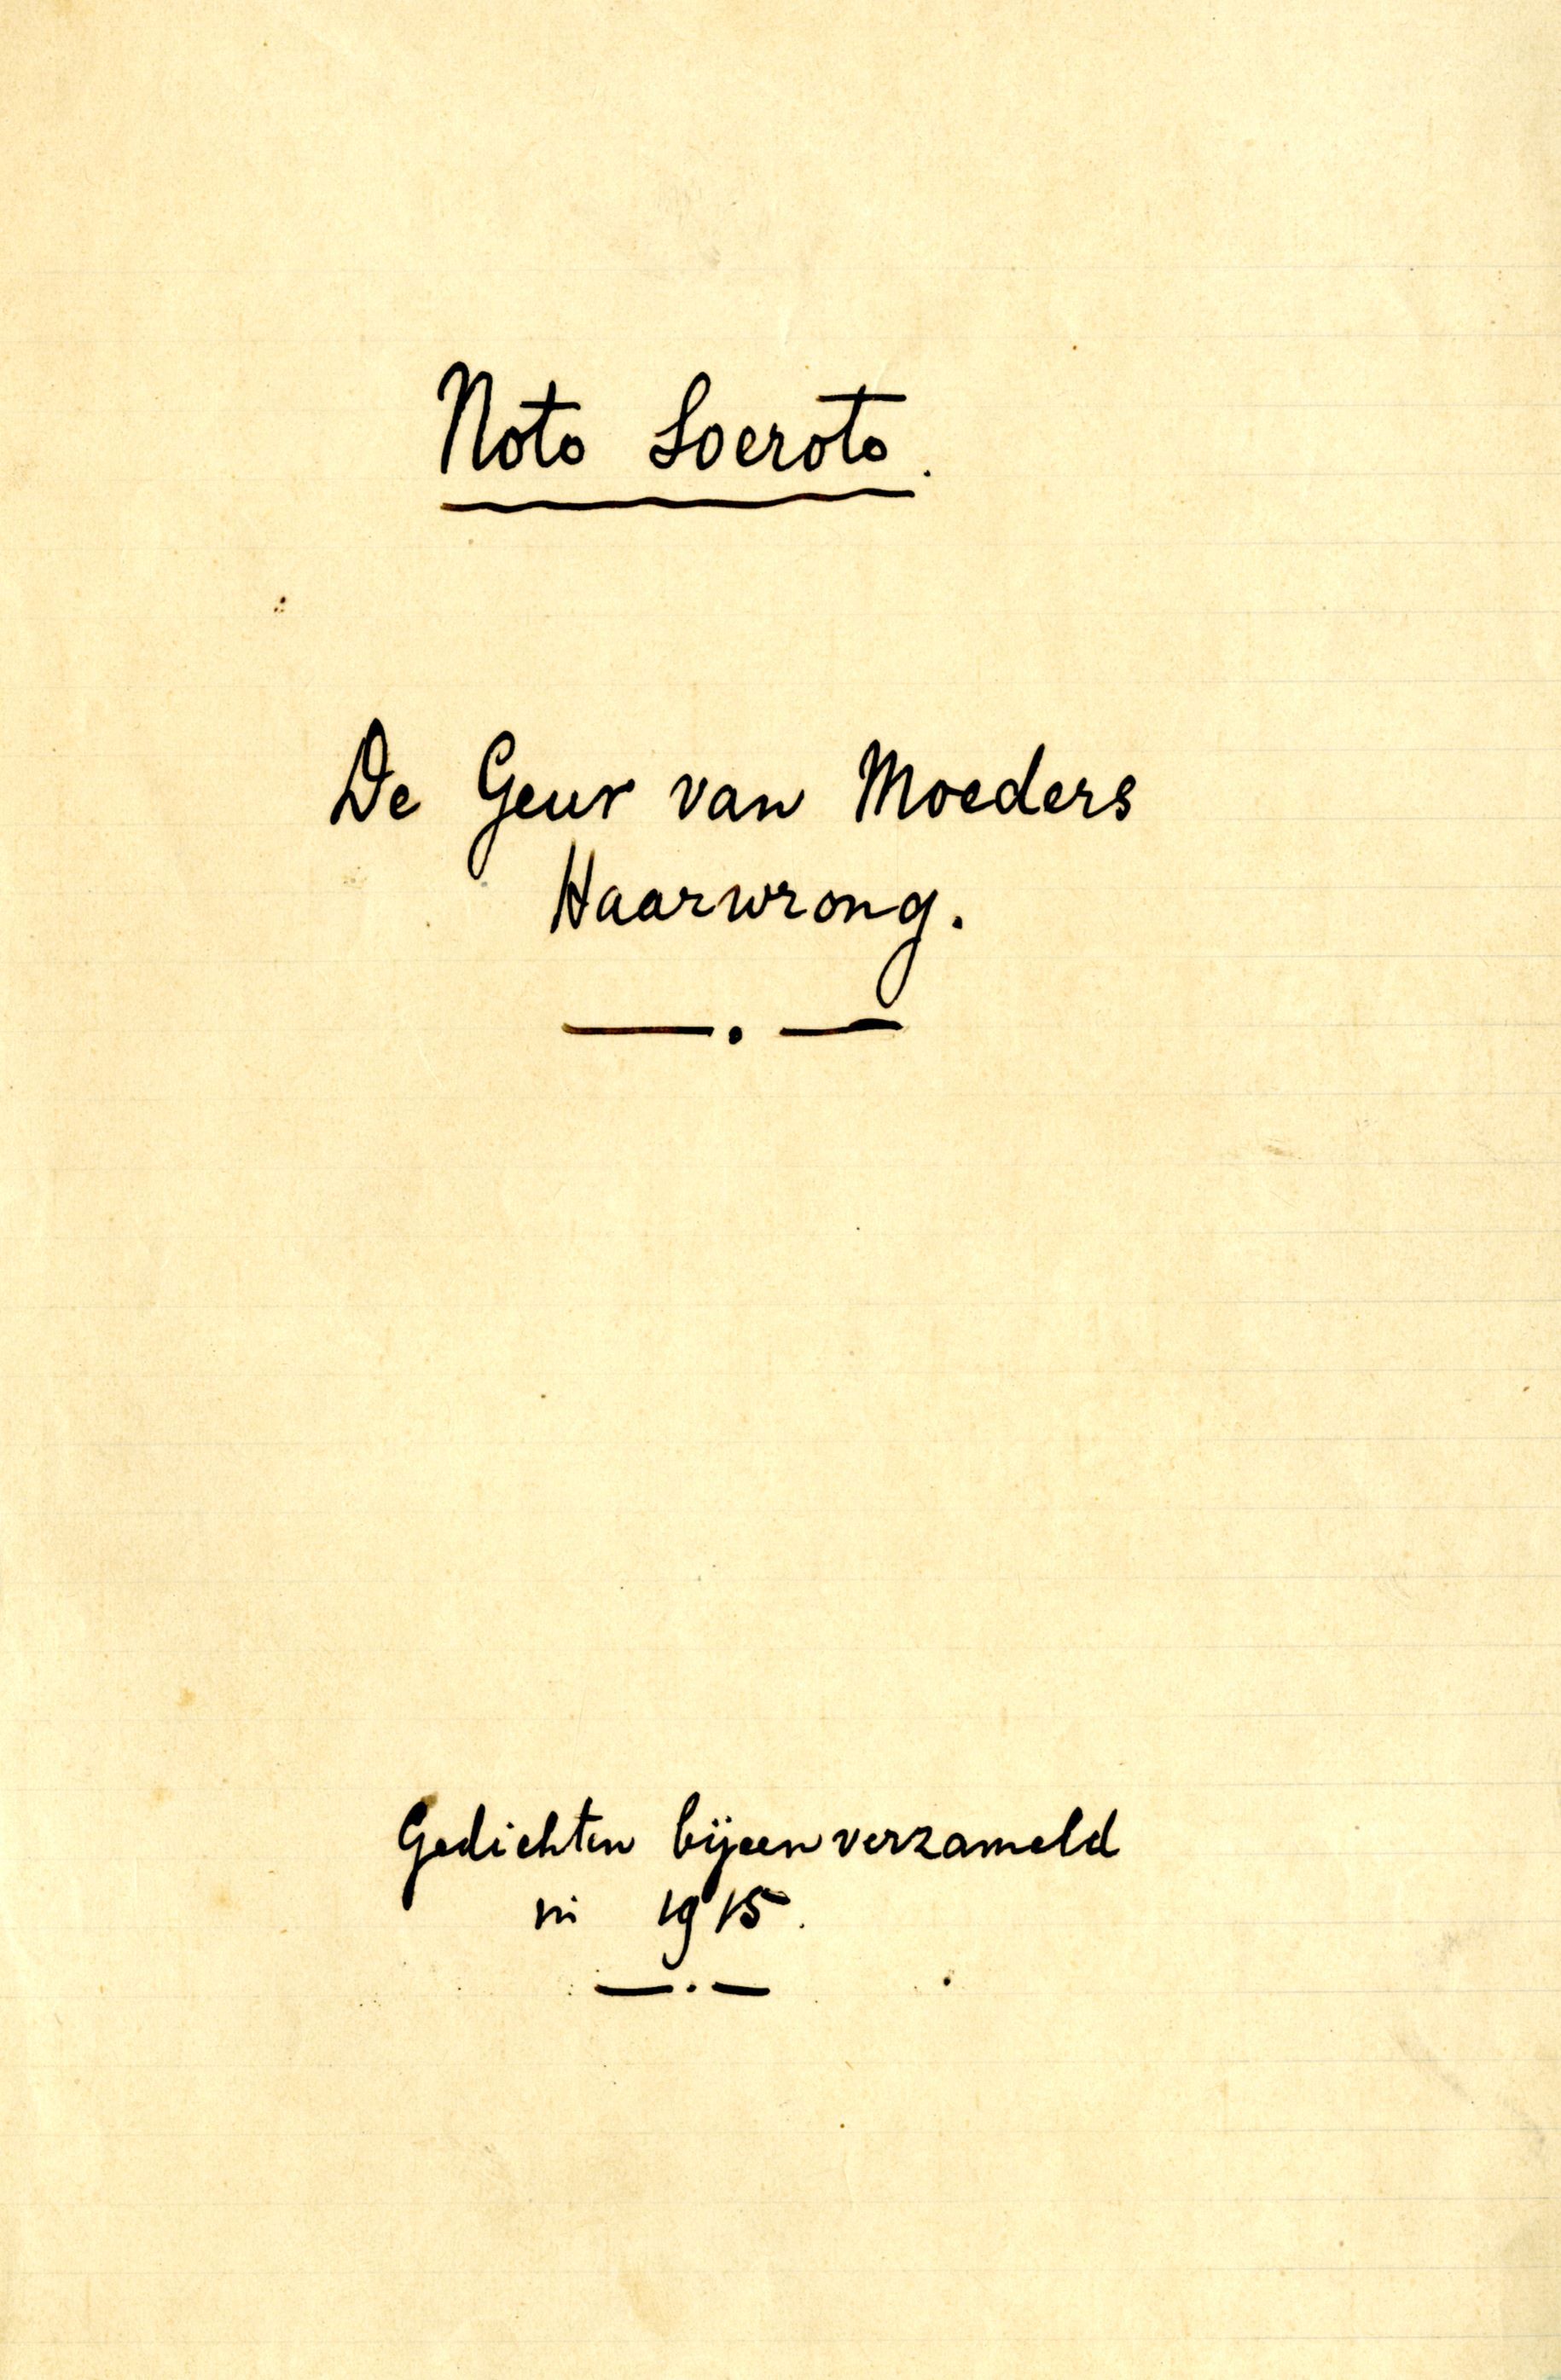 Noto Soeroto.
De Geur van Moeders
Haarwrong.
Gedichten bijeenverzameld
in 1915.